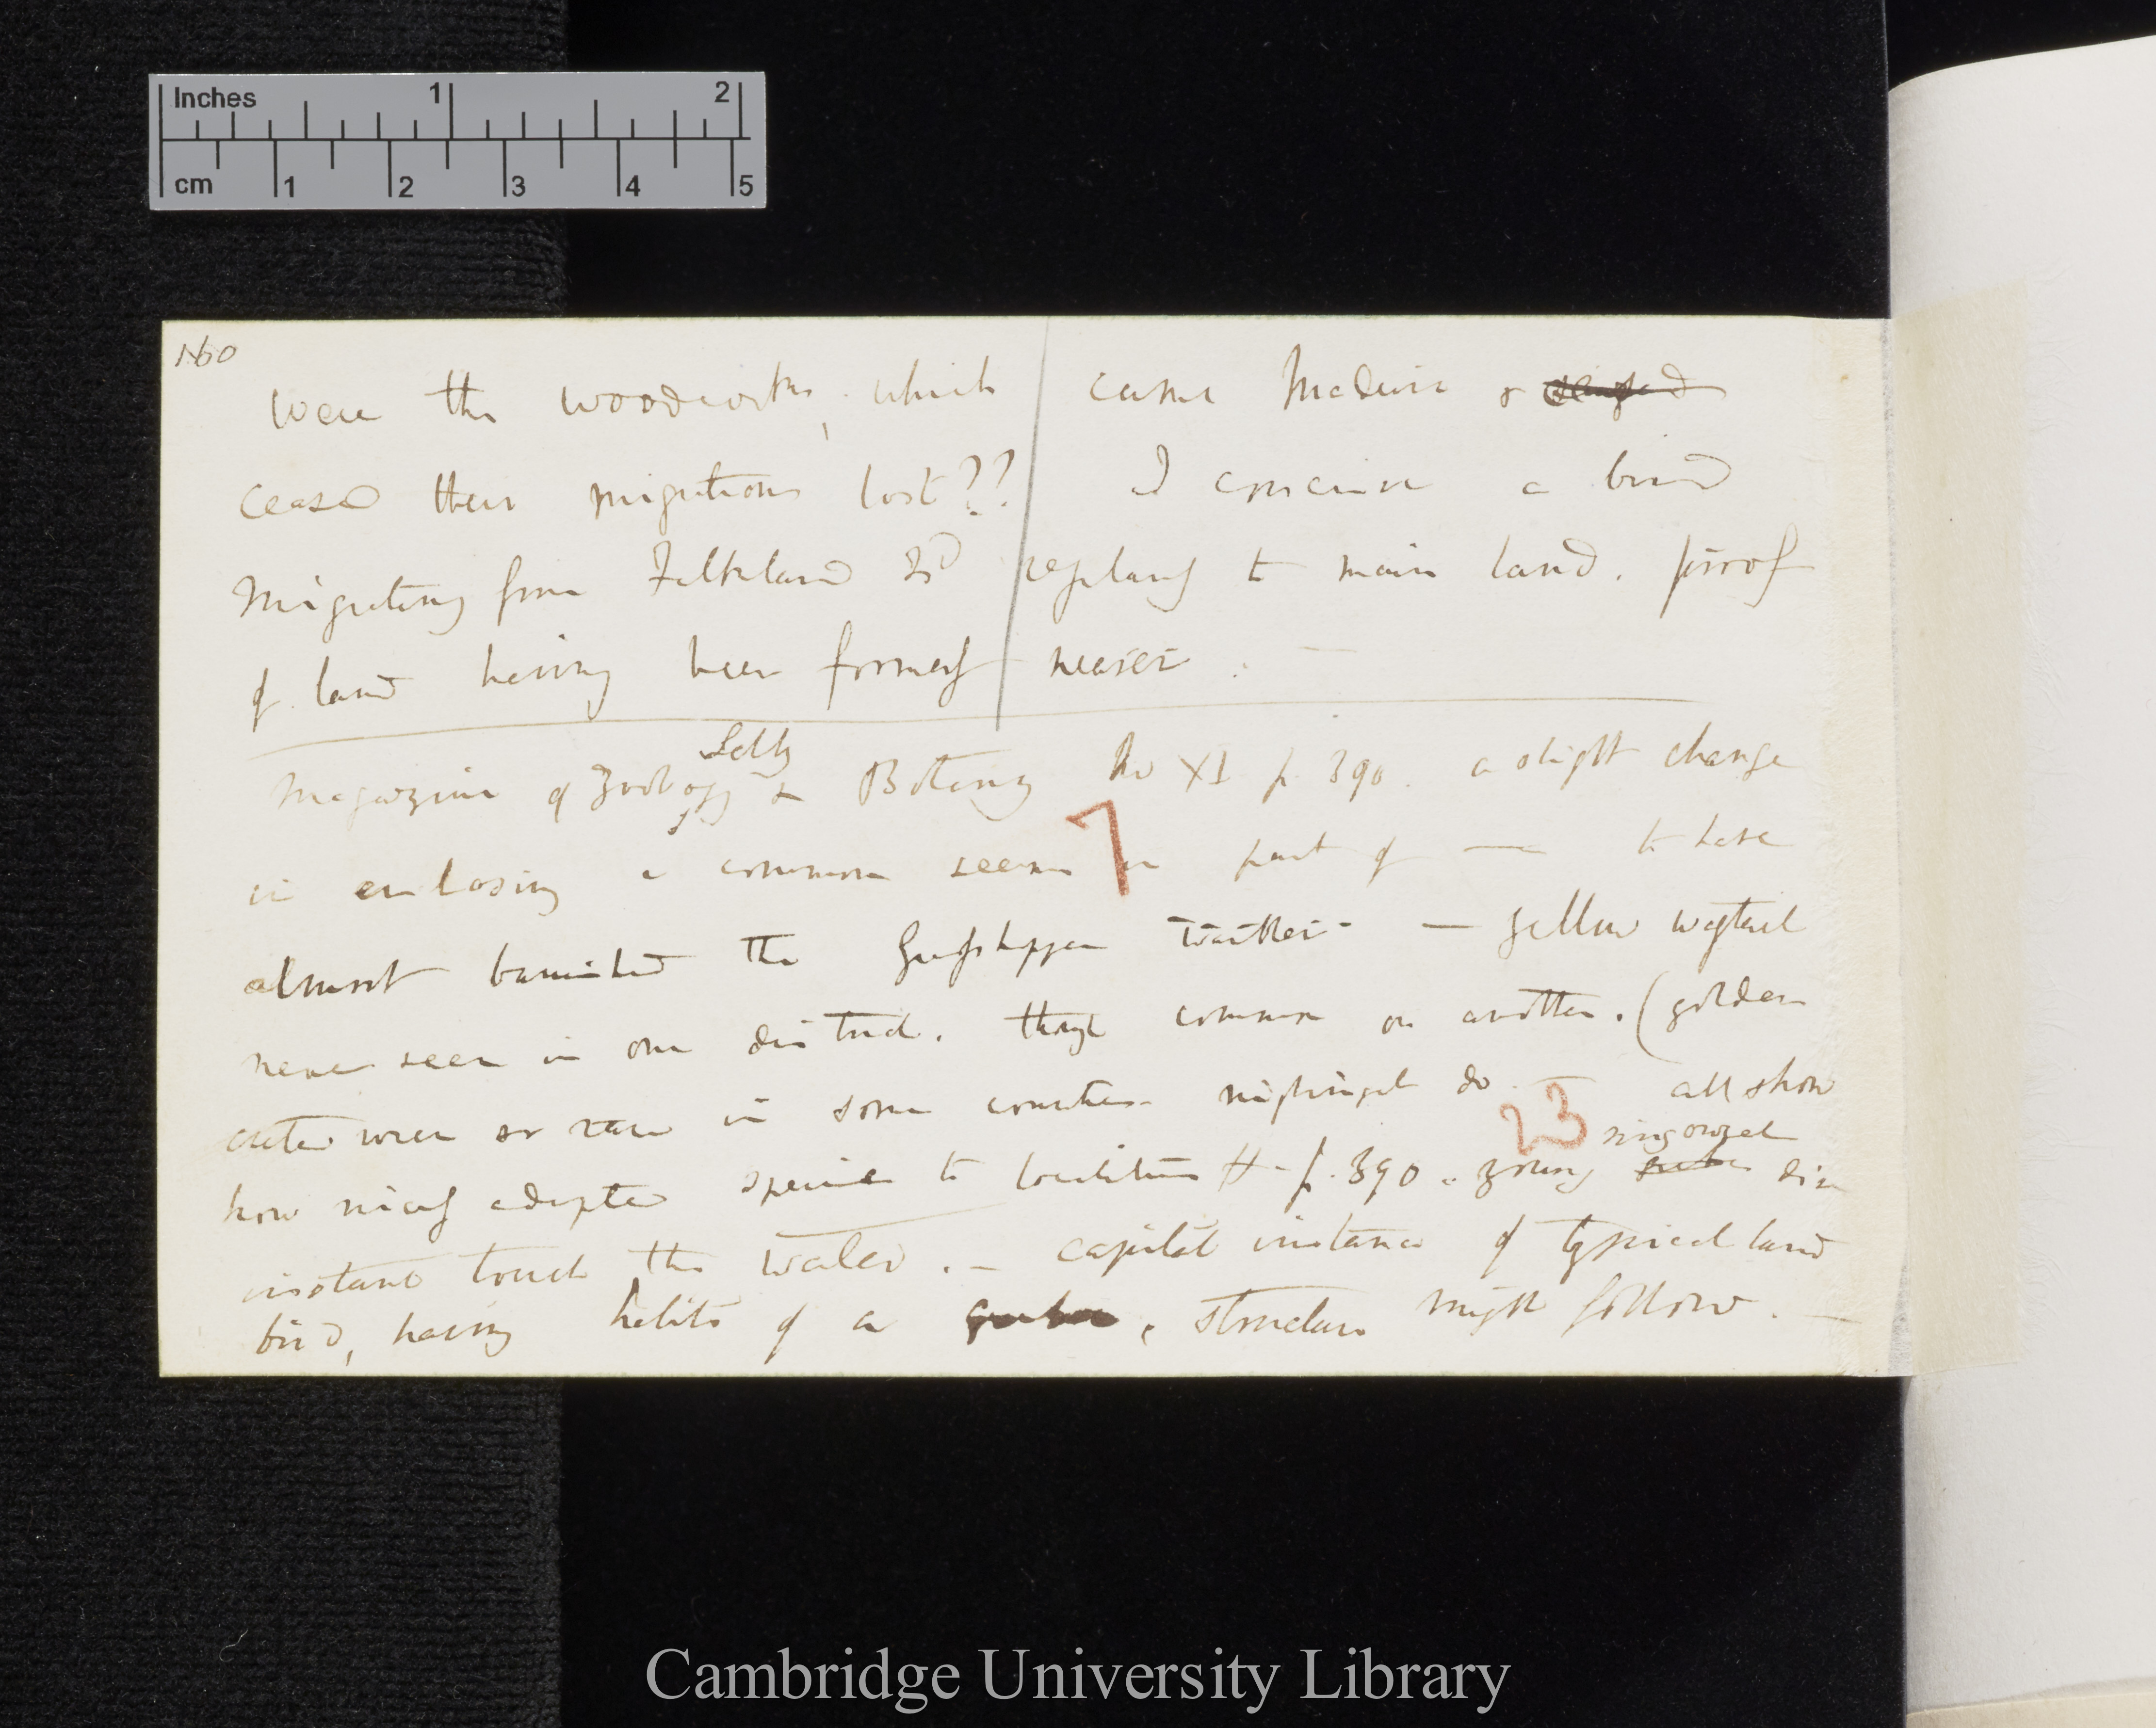 Inches 1 2
cm 1 2 3 4 5
160
Were the woodcocks, which came Madeira &
ceased their migrations lost?? I conceive a bird
migrating from Falkland Isd regularly to main land. proof
of land having been formerly nearer. —
Selby
Magazine of Zoology & Botany No XI p. 390. a slight change
7
in enclosing a common seems in part of — to have
almost banished the Grasshopper warbler — yellow wagtail
never seen in one district. though common on another. (golden
crested wren so rare in some counties nightingale do — all show
23
ring ouzel
how nicely adapted species to localities H- p. 390. young dive
instant touch the water. — capital instance of typical land
bird, having habits of a , structure might follow. —
Cambridge University Library